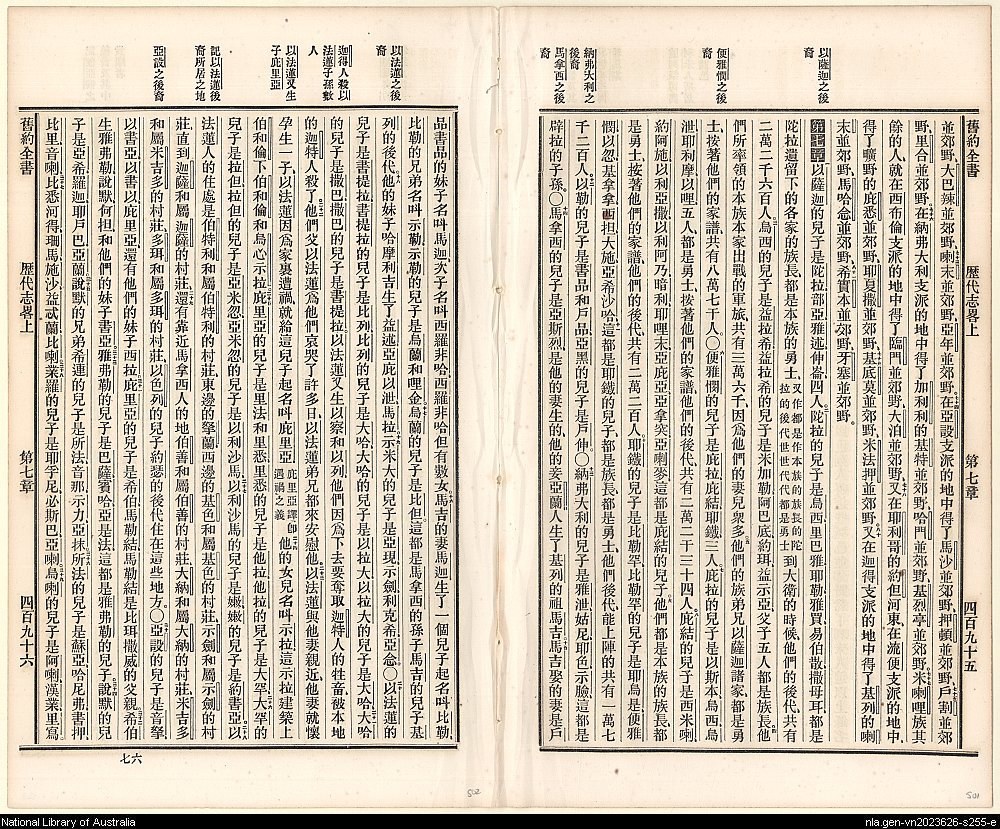 以薩迦之後
裔
便雅憫之後
裔
納弗大利之
後裔
馬拿西之後
裔
舊約全書 歷代志畧上 第七章 四百九十五
並郊野、大巴辣並郊野、喇末並郊野、亞年並郊野、在亞設支派的地中得了馬沙並郊野、押頓並郊野、戶割並郊
野、里合並郊野、在納弗大利支派的地中得了加利利的基特並郊野、哈門並郊野、基烈亭並郊野、米喇哩族其
餘的人、就在西布倫支派的地中得了臨門並郊野、大泊並郊野、又在耶利哥的約但河東在流便支派的地中、
得了曠野的庇悉並郊野、耶夏撒並郊野、基底莫並郊野、米法押並郊野、又在迦得支派的地中得了基列的喇
末並郊野、馬哈念並郊野、希實本並郊野、牙塞並郊野。
第七章 以薩迦的兒子是陀拉部亞雅述伸崙四人、陀拉的兒子是烏西里巴雅耶勒雅買易伯散撒母耳都是
陀拉遺留下的各家的族長、都是本族的勇士、又作都是作本族的族長的陀拉的後代世世代代都是勇士 到大衛的時候、他們的後代共有
二萬二千六百人、烏西的兒子是益拉希益拉希的兒子是米加勒阿巴底約珥益示亞父子五人都是族長、他
們所率領的本族本家出戰的軍旅共有三萬六千、因爲他們的妻兒衆多、他們的族弟兄以薩迦諸家都是勇
士、按著他們的家譜共有八萬七千人、〇便雅憫的兒子是庇拉庇結耶鐵三人、庇拉的兒子是以斯本烏西烏
泄耶利摩以哩五人都是勇士、按著他們的家譜、他們的後代共有二萬二千三十四人、庇結的兒子是西米喇
約阿施以利亞撒以利阿乃暗利耶哩末亞庇亞亞拿突亞喇麥、這都是庇結的兒子、他們都是本族的族長、都
是勇士、按著他們的家譜、他們的後代共有二萬二百人、耶鐵的兒子是比勒罕、比勒罕的兒子是耶烏是便雅
憫以忽基拿拿西担大施亞希沙哈、這都是耶鐵的兒子、都是族長、都是勇士、他們後代、能上陣的共有一萬七
千二百人、以勒的兒子是書品和戶品、亞黑的兒子是戶伸、〇納弗大利的兒子是雅泄姑尼耶色示臉、這都是
辟拉的子孫、〇馬拿西的兒子是亞斯烈是他的妻生的、他的妾亞蘭人生了基列的祖馬吉、馬吉娶的妻是戶
以法蓮之後
裔
迦得人殺以
法蓮子孫數
人
以法蓮又生
子庇里亞
記以法蓮後
裔所居之地
亞設之後裔
品書品的妹子名叫馬迦、次子名叫西羅非哈、西羅非哈但有數女、馬吉的妻馬迦生了一個兒子起名叫比勒、
比勒的兄弟名叫示勒、示勒的兒子是烏蘭和哩金、烏蘭的兒子是比但、這都是馬拿西的孫子馬吉的兒子基
列的後代、他的妹子哈摩利吉生了益述亞庇以泄馬拉、示米大的兒子是亞現示劍利克希亞念、〇以法蓮的
兒子是書提拉、書提拉的兒子是比列、比列的兒子是大哈、大哈的兒子是以拉大、以拉大的兒子是大哈、大哈
的兒子是撒巴、撒巴的兒子是書提拉、以法蓮又生以察和以列、他們因爲下去要奪取迦特人的牲畜、被本地
的迦特人殺了、他們父以法蓮爲他們哀哭了許多日、以法蓮弟兄都來安慰他、以法蓮與他妻親近、他妻就懷
孕生一子、以法蓮因爲家裏遭禍就給這兒子起名叫庇里亞、庇里亞譯卽遇禍之義 他的女兒名叫示拉、這示拉建築上
伯和倫下伯和倫和烏心示拉、庇里亞的兒子是里法和里悉、里悉的兒子是他拉、他拉的兒子是大罕、大罕的
兒子是拉但、拉但的兒子是亞米忽、亞米忽的兒子是以利沙馬、以利沙馬的兒子是嫩、嫩的兒子是約書亞、以
法蓮人的住處是伯特利和屬伯特利的村莊、東邊的拏蘭、西邊的基色和屬基色的村莊、示劍和屬示劍的村
莊、直到迦薩和屬迦薩的村莊、還有靠近馬拿西人的地伯善和屬伯善的村莊、大納和屬大納的村莊、米吉多
和屬米吉多的村莊、多珥和屬多珥的村莊、以色列的兒子約瑟的後代住在這些地方、〇亞設的兒子是音拏
以書亞以書以庇里亞、還有他們的妹子西拉、庇里亞的兒子是希伯馬勒結、馬勒結是比珥撒威的父親、希伯
生雅弗勒說默何担和他們的妹子書亞、雅弗勒的兒子是巴薩賓哈亞施法、這都是雅弗勒的兒子、說默的兒
子是亞希羅迦耶戶巴亞蘭、說默的兄弟希連的兒子是所法音那示力亞抹、所法的兒子是蘇亞哈尼弗書押
比里音喇比悉河得珊馬施沙益忒蘭比喇、業羅的兒子是耶孚尼必斯巴亞喇、烏喇的兒子是阿喇漢業里寫
舊約全書 歷代志畧上 第七章 四百九十六
七六
502
501
National Library of Australia
nla.gen-vn2023626-s255-e